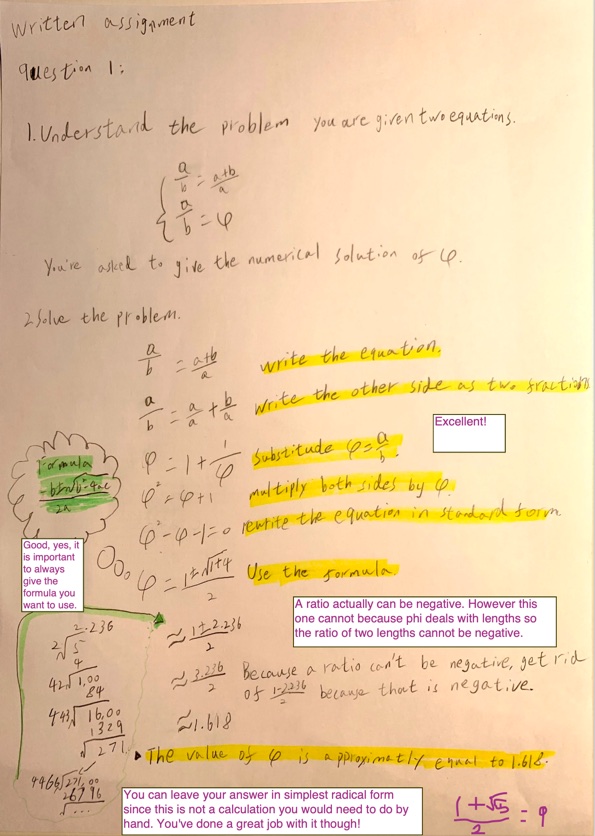 Written assignment
Question 1:
1. Understand the problem you are given two equations.
a/b = a+b/a
a/b = φ
You're asked to give the numerical solution of φ.
2 Solve the problem.
a/b = a+b/a write the equation.
a/b = a/a + b/a write the other side as two fractions
Excellent!
φ = 1 + 1/φ Substitude φ = a/b.
φ² = φ + 1 multiply both sides by φ.
φ² - φ - 1 = 0 rewrite the equation in standard form
φ = 1±√1+4/2 Use the formula.
Formula
-b±√b²-4ac/2a
Good, yes, it
is important
to always
give the
formula you
want to use.
A ratio actually can be negative. However this
one cannot because phi deals with lengths so
the ratio of two lengths cannot be negative.
≈ 1±2.236/2
≈ 3.236/2 Because a ratio can't be negative, get rid
of 1-2.236/2 because that is negative.
≈ 1.618
2.236
2√5
4
42√1.00
84
443√16.00
1329
√271
4466√271.00
26796
√...
The value of φ is approximatly equal to 1.618.
You can leave your answer in simplest radical form
since this is not a calculation you would need to do by
hand. You've done a great job with it though!
1+√5/2 = φ